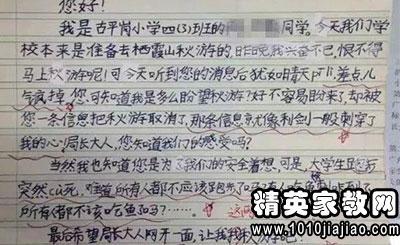 您好!
我是古平岗小学四(3)班的 同学,今天我们学
校本来是准备去栖霞山秋游的,昨晚我兴奋不已,恨不得
马上秋游呢!可今天听到您的消息后犹如晴天 ,差点儿
气疯掉 您可知道我是多么盼望秋游?好不容易盼来了,却被
您一条信息把秋游取消了,那条信息就像利剑一般刺穿了
我的心,局长大人,您知道我们的感受吗?
当然我也知道您是为了我们的安全着想,可是,大学生跑步
突然 死,难道所有人都不应该跑步 吃鱼
所有人都不该吃鱼了吗?……。这
最后希望局长大人网开一面,让我
精英家教网
www.1010jiajiao.com